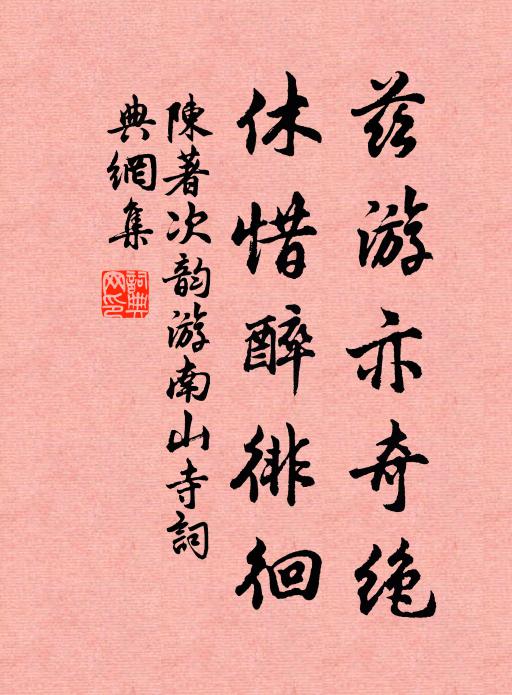 茲游亦奇绝
休惜醉徘徊
陳著次韵游南山寺詞
典網集
詞典网印